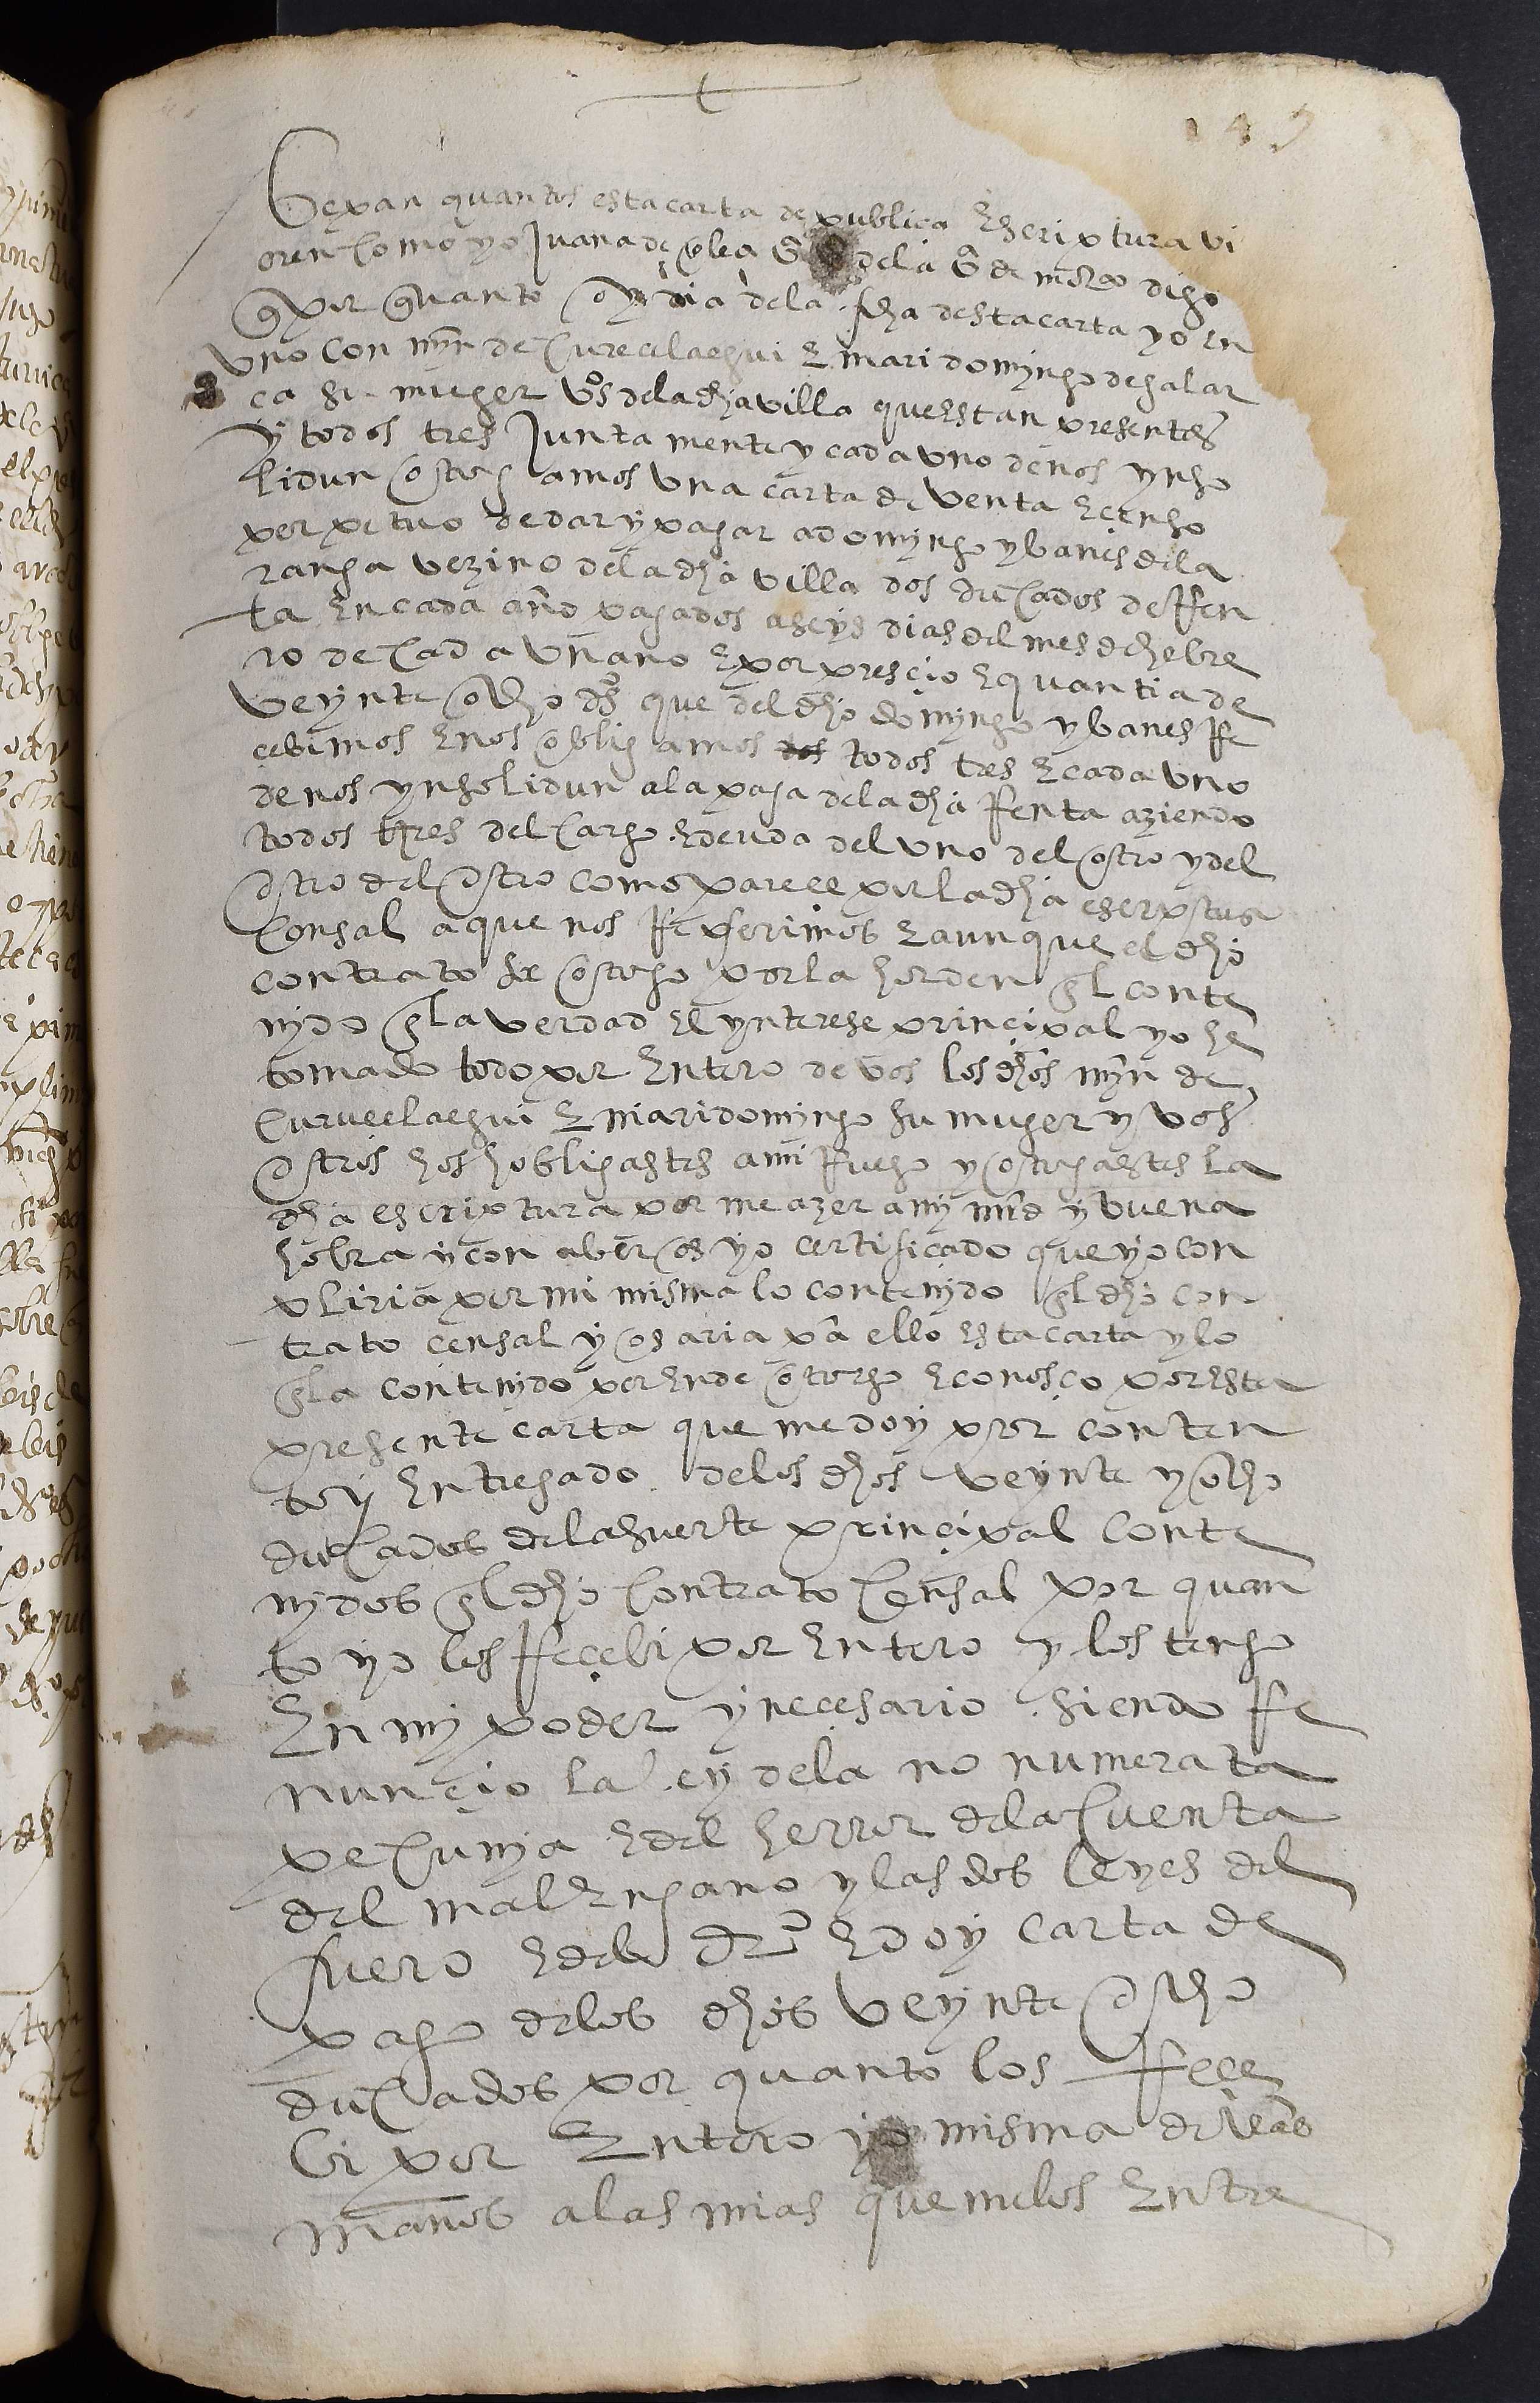 149
Sepan quantos esta carta de publica Escriptura vi
eren Como yo Juana de olea v^a dela v^a de mo digo
q por quanto oy dia dela fha desta carta yo en
vno con myn de Curuclaegui E mari domyngo de galar
ca su muger v^os dela dha villa questan presentes
y todos tres Junta mente y cada vno de nos ynso
lidun otorgamos vna carta de venta E censo
perpetuo de dar y pagar a domyngo ybanes de la
ranga vezino dela dha villa dos duCados de Ren
ta En cada año pagados a seys dias del mes de hebre
ro de Cada vn ano E por prescio E quantia de
veynte ocho d^os que del dho domyngo ybanes Re
cebimos E nos obligamos todos tres E cada vno
de nos ynsolidun ala paga dela dha Renta aziendo
todos tres del Cargo E deuda del vno del otro y del
otro del otro como parece por la dha escriptura
Censal a que nos Referimos E aunque el dho
contrato se otorgo por la horden en el conte
nydo en la verdad El ynterese principal yo he
tomado todo por Entero de vos los dhos myn de
Curuclaegui E mari domyngo su muger y vos
otros hos hobligastes a mi Ruego y otorgastes la
dha escriptura por me azer a my mrd y buena
hobra y con aberos yo certificado que yo con
pliria por mi misma lo contenydo en el dho con
trato censal y os aria pa ello esta carta y lo
en la contenydo por Ende otorgo E conosco por esta
presente carta que me doy por conten
to y Entregado delos dhos veynte y ocho
duCados dela suerte principal conte
nydos en el dho Contrato Censal por quan
to yo los Recebi por Entero y los tengo
En my poder y necesario siendo Re
nuncio la ley dela no numerata
peCunya E del herror dela Cuenta
del mal Engano y las dos leyes del
fuero E del dr^o E doy carta de
pago delos dhos veynte ocho
duCados por quanto los Rece
bi por Entero yo misma de v^ras
manos alas mias que me los Entre